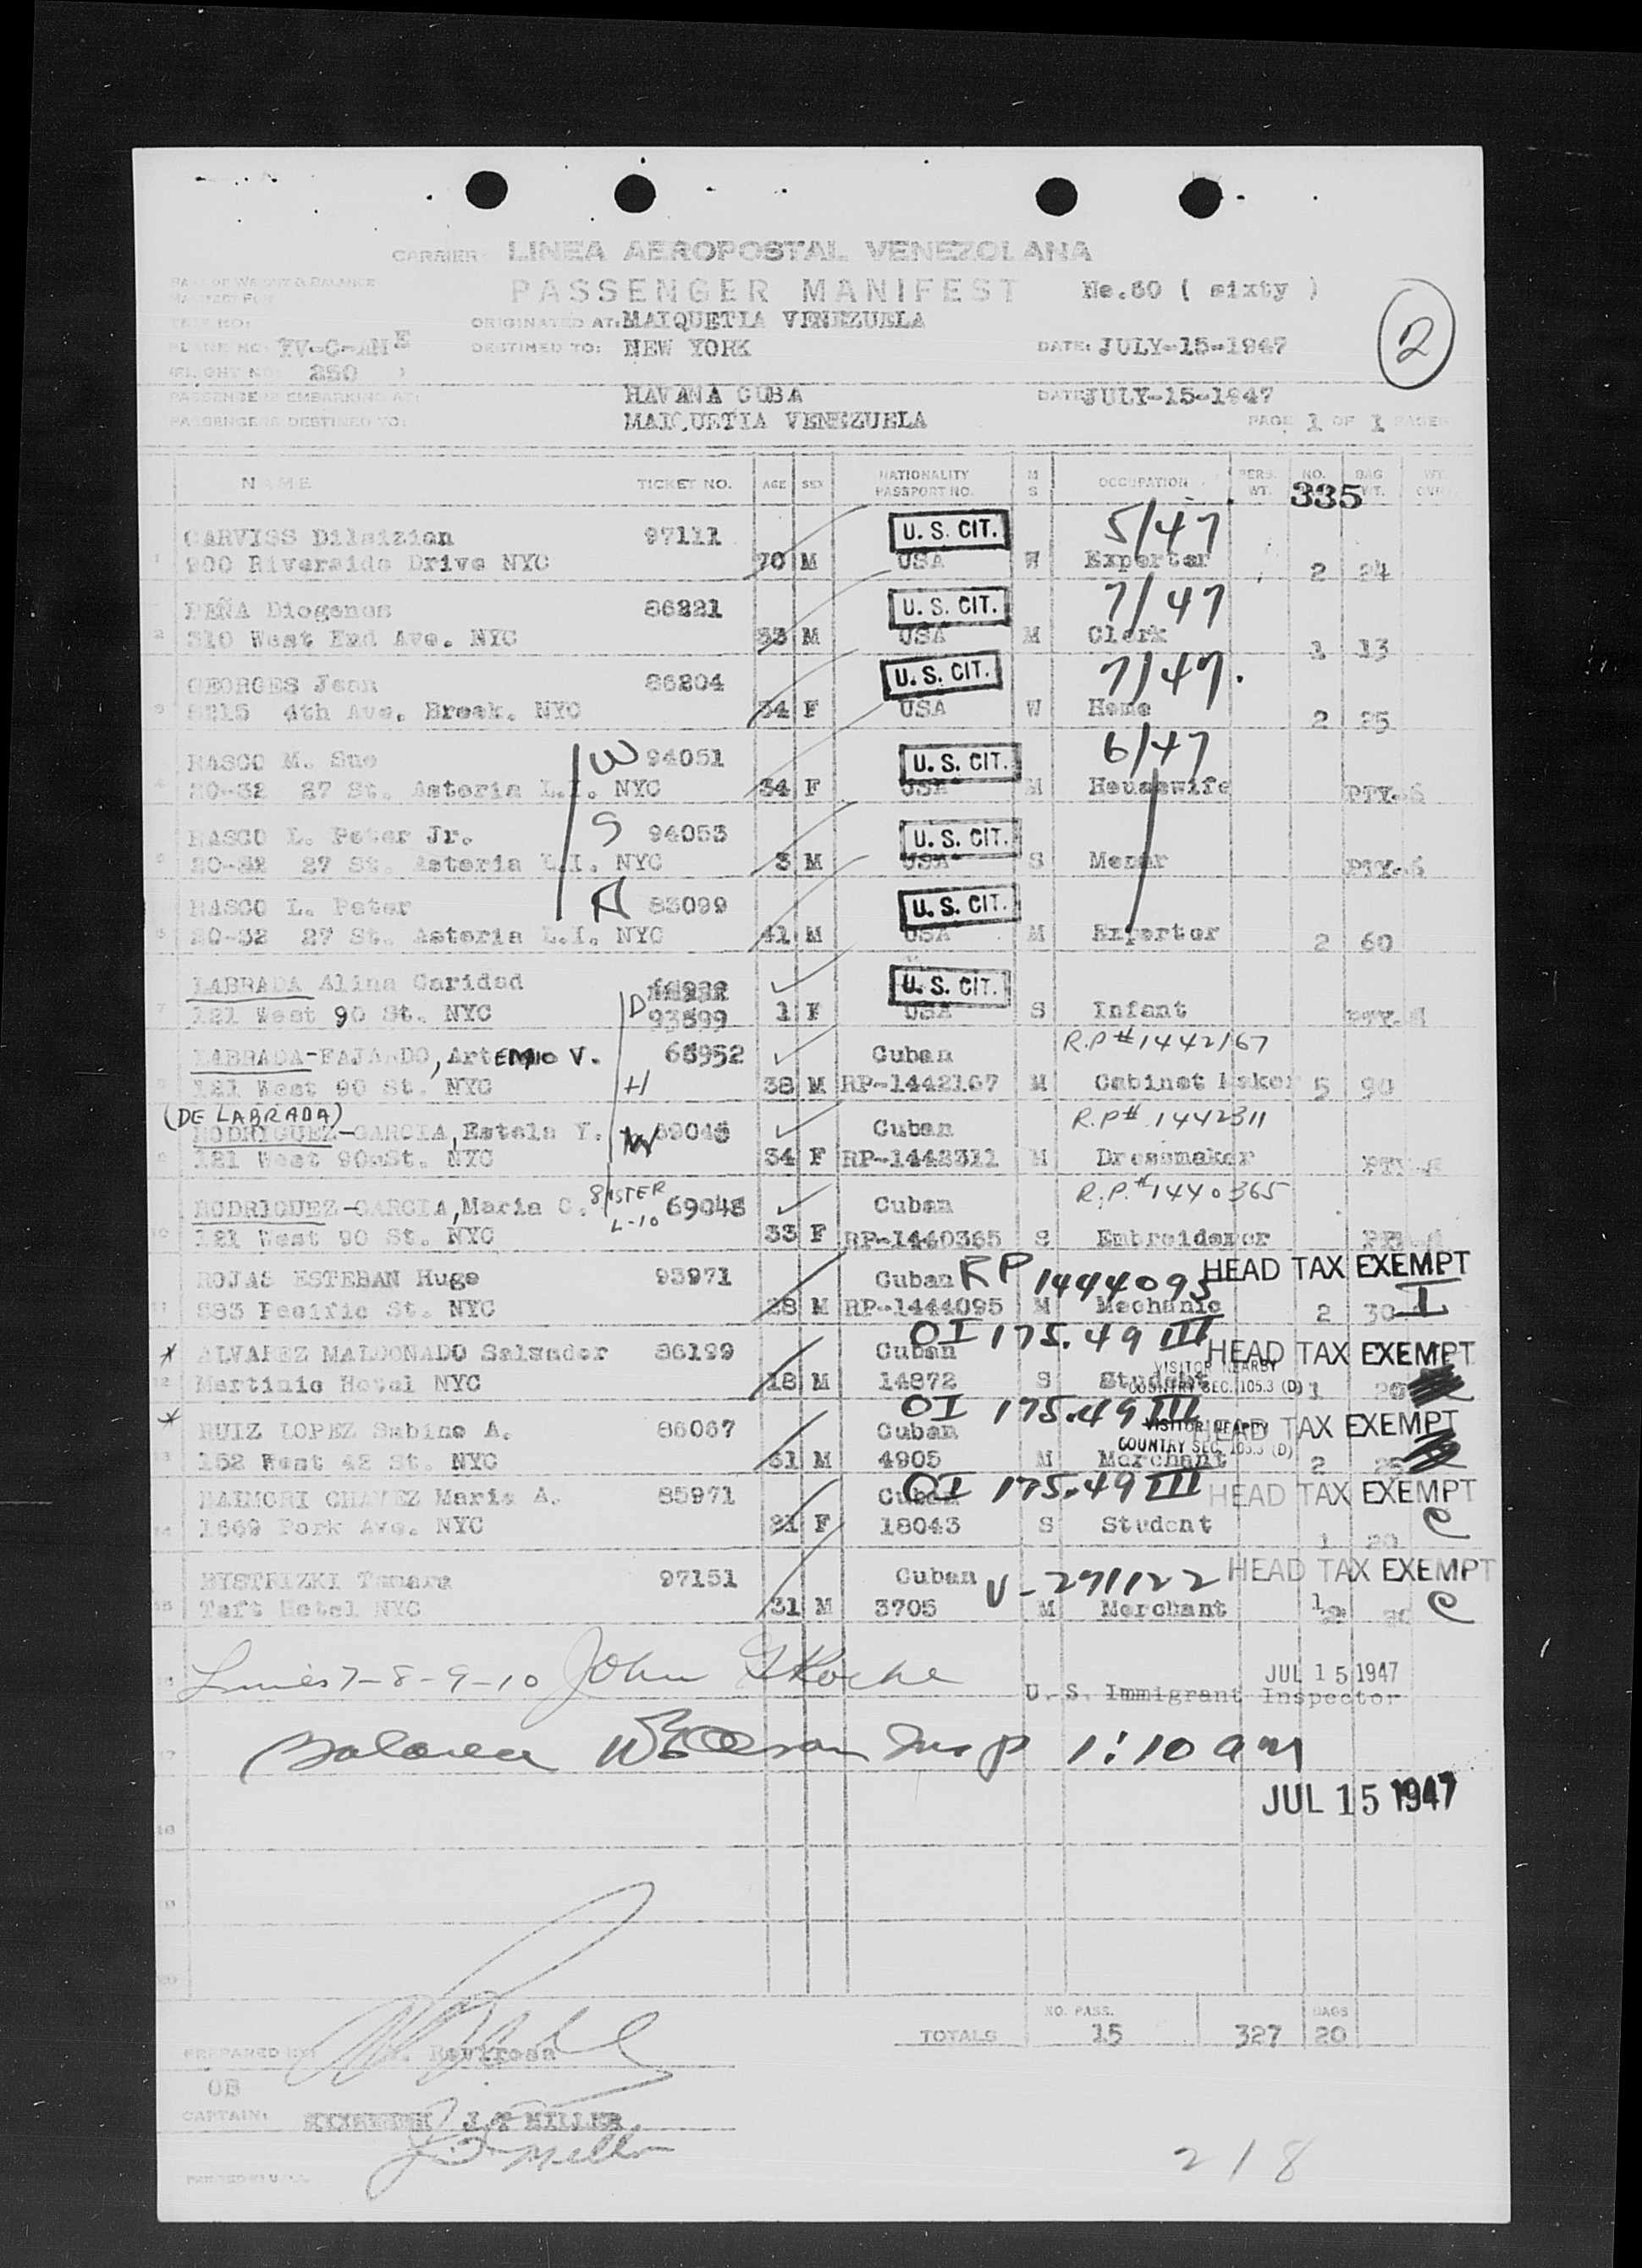 CARRIER: LINEA AEROPOSTAL VENEZOLANA
PASSENGER MANIFEST No.60 ( sixty )
ORIGINATED AT: MAIQUETIA VENEZUELA
2
PLANE NO: YV-C-AME DESTINED TO: NEW YORK DATE: JULY-15-1947
FLIGHT NO: 250
PASSENGERS EMBARKING AT: HAVANA CUBA DATE JULY-15-1947
PASSENGERS DESTINED TO: MAIQUETIA VENEZUELA PAGE 1 OF 1 PAGES
NAME TICKET NO. AGE SEX NATIONALITY PASSPORT NO. M S OCCUPATION PERS. WT. NO. BAG WT.
335
GARVISS Dilsizian 97111 U. S. CIT. 5/47
1 900 Riverside Drive NYC 70 M USA W Exporter 2 24
PEÑA Diogenes 86221 U. S. CIT. 7/47
2 310 West End Ave. NYC 33 M USA M Clerk 1 13
GEORGES Jean 86204 U. S. CIT. 7/47.
3 8215 4th Ave. Brook. NYC 34 F USA W Home 2 25
RASCO M. Sue W 94051 U. S. CIT. 6/47
4 20-32 27 St. Astoria L.I. NYC 34 F USA M Housewife PTY-6
RASCO L. Peter Jr. S 94053 U. S. CIT.
5 20-32 27 St. Astoria L.I. NYC 3 M USA S Menor PTY-6
RASCO L. Peter 83099 U. S. CIT.
6 20-32 27 St. Astoria L.I. NYC 41 M USA M Exporter 2 60
LABRADA Alina Caridad U. S. CIT.
7 121 West 90 St. NYC D 93599 1 F USA S Infant
LABRADA-FAJARDO, ArtEMIO V. 68952 Cuban R.P # 1442167
8 121 West 90 St. NYC H 38 M RP-1442167 M Cabinet Maker 5 90
(DE LABRADA)
RODRIGUEZ-GARCIA, Estela Y. W 69046 Cuban R.P# 1442311
9 121 West 90 St. NYC 34 F RP-1442311 M Dressmaker
RODRIGUEZ-GARCIA, Maria C. SISTER L-10 69048 Cuban R.P.# 1440365
10 121 West 90 St. NYC 33 F RP-1440365 S Embroiderer
ROJAS ESTEBAN Hugo 93971 Cuban RP 1444095 HEAD TAX EXEMPT
11 583 Pacific St. NYC 28 M RP-1444095 M Mechanic 2 30 I
OI 175.49 III
* ALVAREZ MALDONADO Salvador 86199 Cuban HEAD TAX EXEMPT
VISITOR NEARBY COUNTRY SEC. 105.3 (D)
12 Martinic Hotel NYC 18 M 14872 S Student 1 20
OI 175.49 III
* RUIZ LOPEZ Sabino A. 86067 Cuban HEAD TAX EXEMPT
VISITOR NEARBY COUNTRY SEC. 105.3 (D)
13 152 West 42 St. NYC 31 M 4905 M Merchant 2 25
OI 175.49 III
RAIMORI CHAVEZ Maria A. 85971 Cuban HEAD TAX EXEMPT
14 1669 York Ave. NYC 21 F 18043 S Student 1 20 C
BYSTRIZKI Tamara 97151 Cuban V-271122 HEAD TAX EXEMPT
15 Taft Hotel NYC 31 M 3705 M Merchant C
Lines 7-8-9-10 John JUL 15 1947
U. S. Immigrant Inspector
Balance Insp 1:10 am
JUL 15 1947
18
19
20
TOTALS NO. PASS. 15 327 BAGS 20
PREPARED BY:
OB
CAPTAIN: J.T MILLER
218